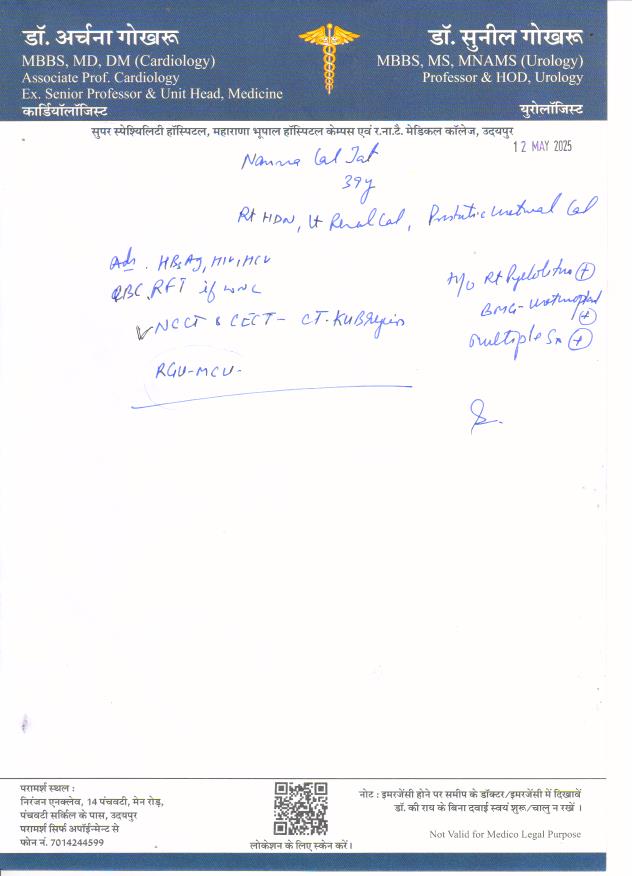 डॉ. अर्चना गोखरू
MBBS, MD, DM (Cardiology)
Associate Prof. Cardiology
Ex. Senior Professor & Unit Head, Medicine
कार्डियॉलॉजिस्ट
डॉ. सुनील गोखरू
MBBS, MS, MNAMS (Urology)
Professor & HOD, Urology
युरोलॉजिस्ट
सुपर स्पेश्यिलिटी हॉस्पिटल, महाराणा भूपाल हॉस्पिटल केम्पस एवं र.ना.टै. मेडिकल कॉलेज, उदयपुर
12 MAY 2025
Lal Jat
39y
Rt HDN, Lt Renal Cal, Prostatic urethral Cal
Adv. HBsAg, HIV, HCV
RFT
NCCT & CECT - CT. KUB Region
RGU-MCU-
H/O Rt Pyelolitho +
BMG-
+
multiple Sx +
परामर्श स्थल :
निरंजन एनक्लेव, 14 पंचवटी, मेन रोड़,
पंचवटी सर्किल के पास, उदयपुर
परामर्श सिर्फ अपॉईन्मेन्ट से
फोन नं. 7014244599
लोकेशन के लिए स्केन करें।
नोट : इमरजेंसी होने पर समीप के डॉक्टर/इमरजेंसी में दिखावें
डॉ. की राय के बिना दवाई स्वयं शुरू/चालु न रखें ।
Not Valid for Medico Legal Purpose